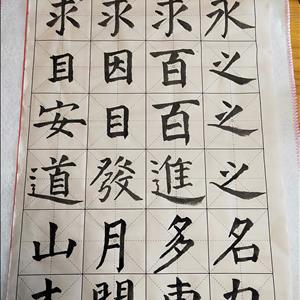 永之之之名
求百百進多東
求因目發月開
求目安道山